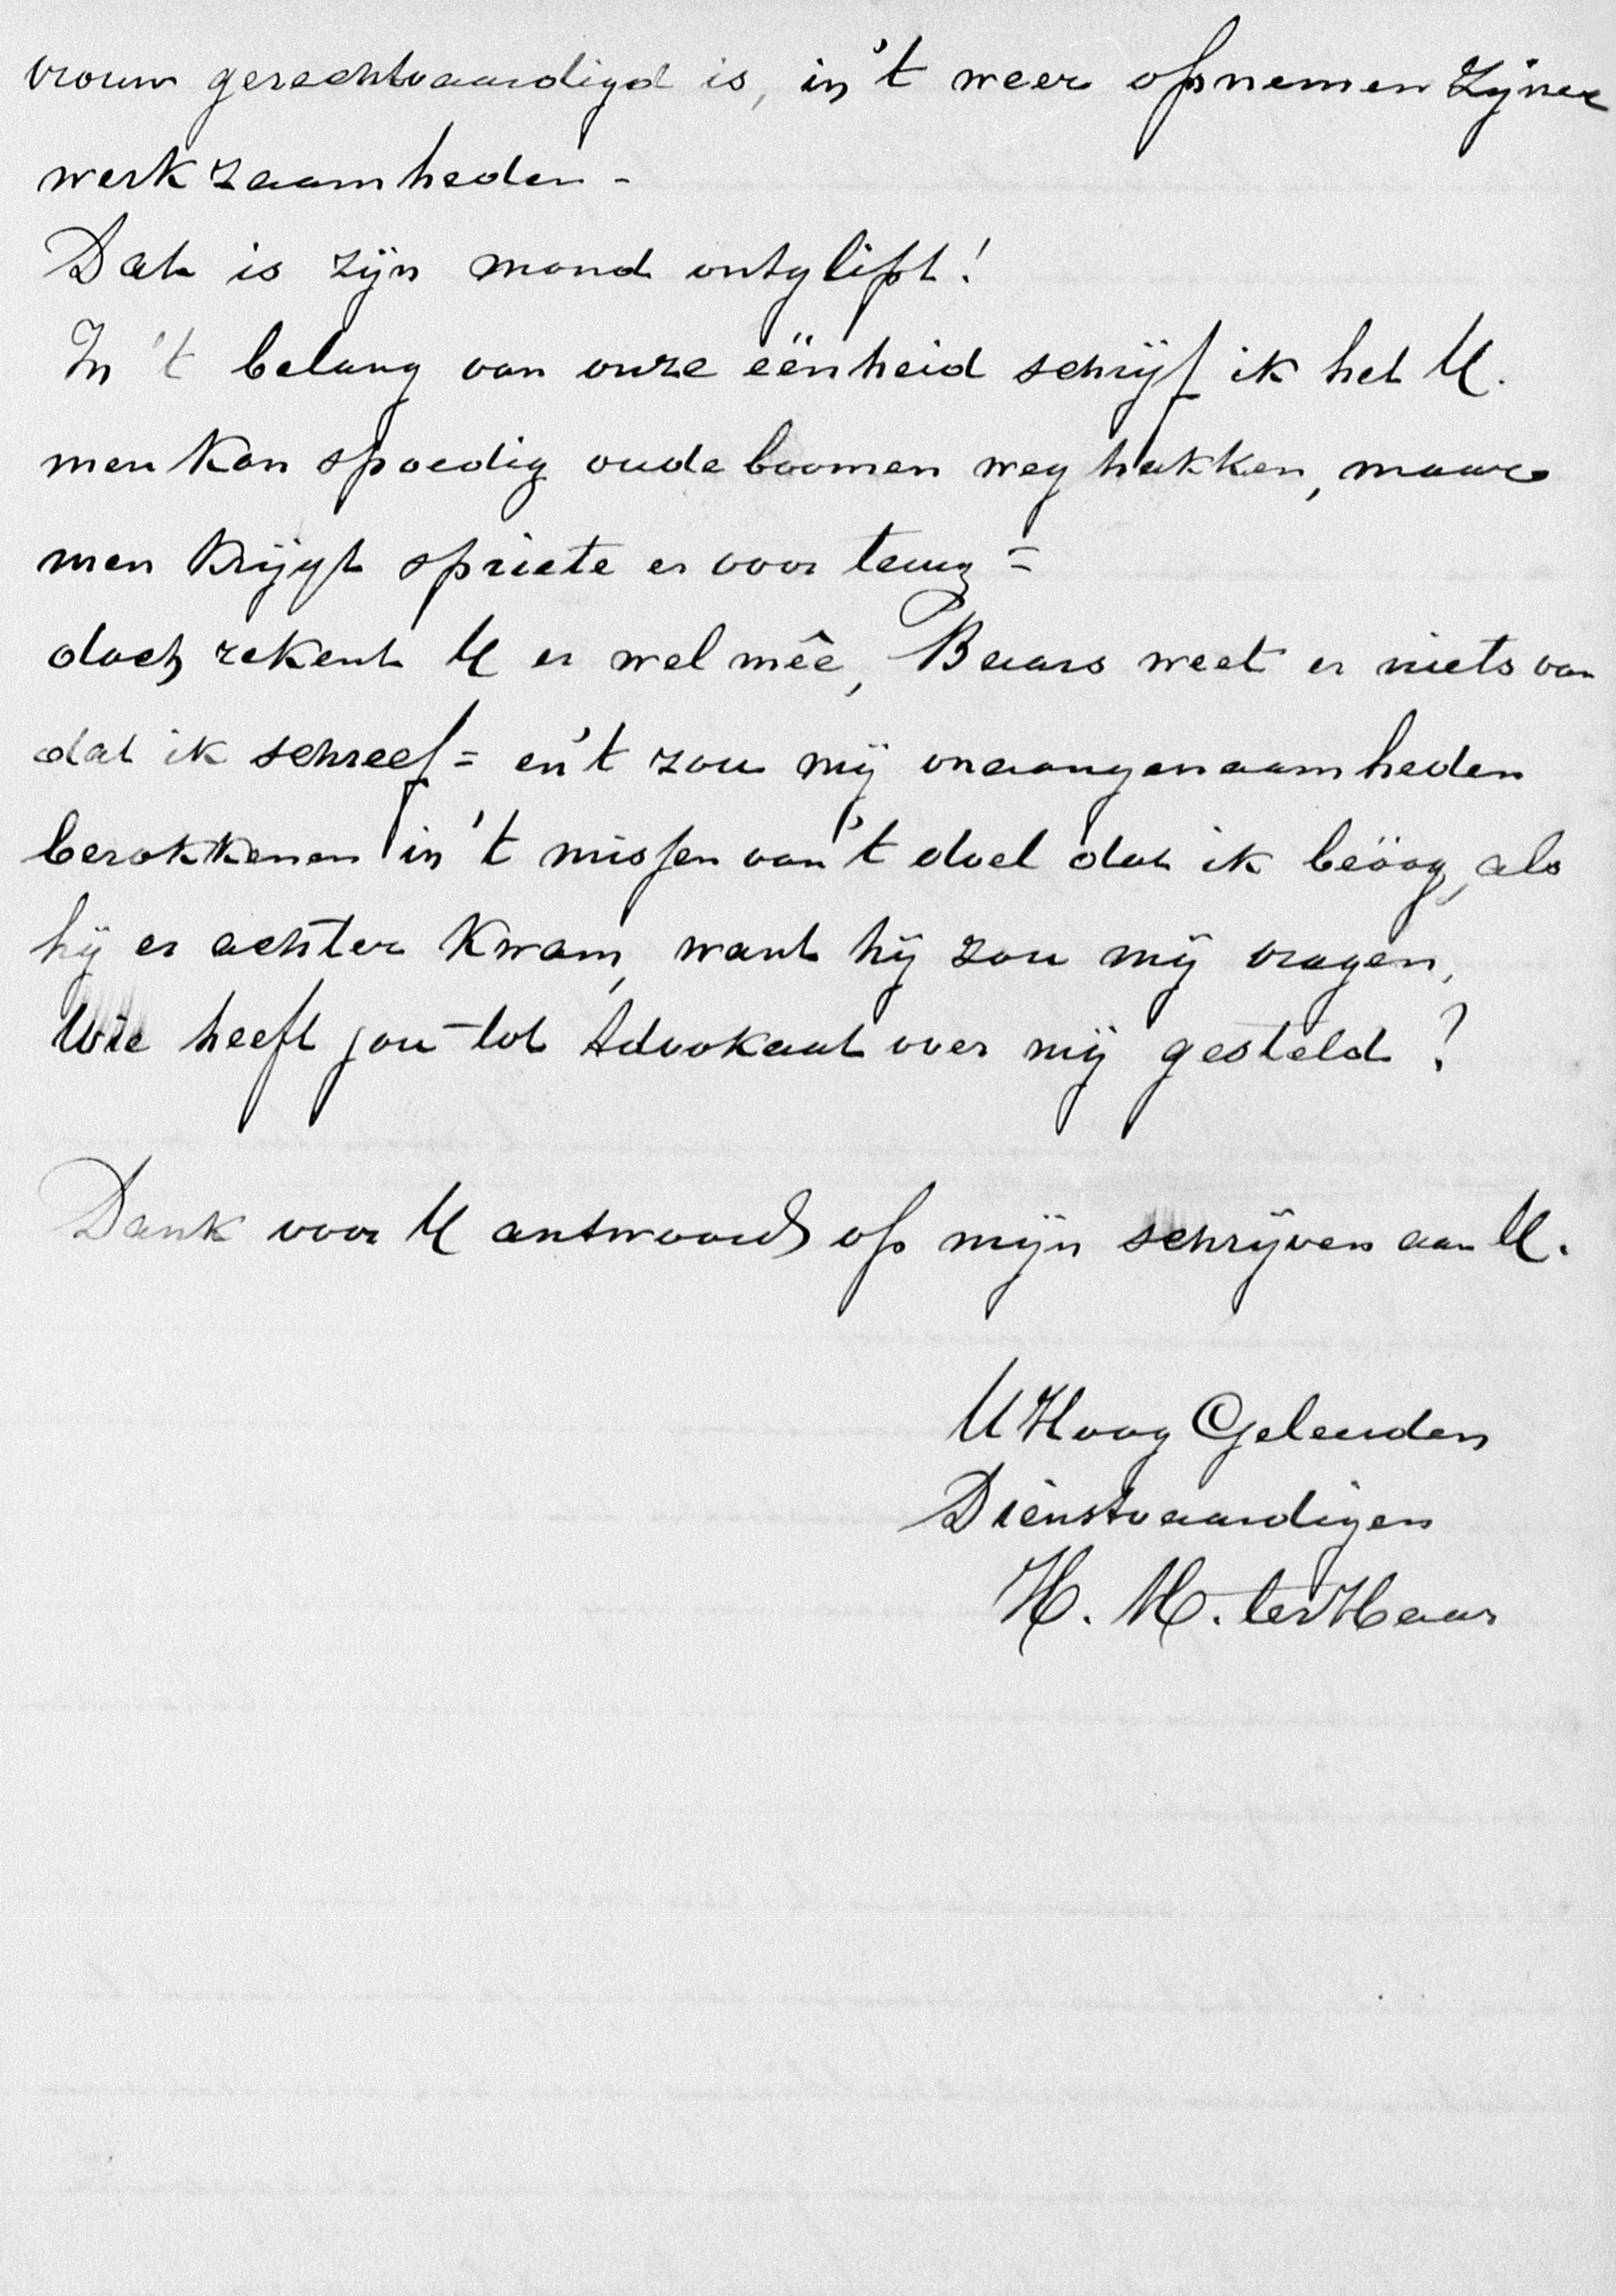 vrouw gerechtvaardigd is, in 't weer opnemen zijner
werkzaamheden -
Dat is zijn mond ontglipt!
In 't belang van onze eënheid schrijf ik het U.
men kan spoedig oude boomen weg hakken, maar
men krijgt spriete er voor terug =
doch rekent U er wel meê, Baars weet er niets van
dat ik schreef = en 't zou mij onaangenaamheden
berokkenen in 't missen van 't doel dat ik beöog, als
hij er achter kwam, want hij zou mij vragen,
Wie heeft jou tot Advokaat over mij gesteld?
Dank voor U antwoord op mijn schrijven aan U.
U Hoog Geleerden
Dienstvaardigen
H. H. ter Haar